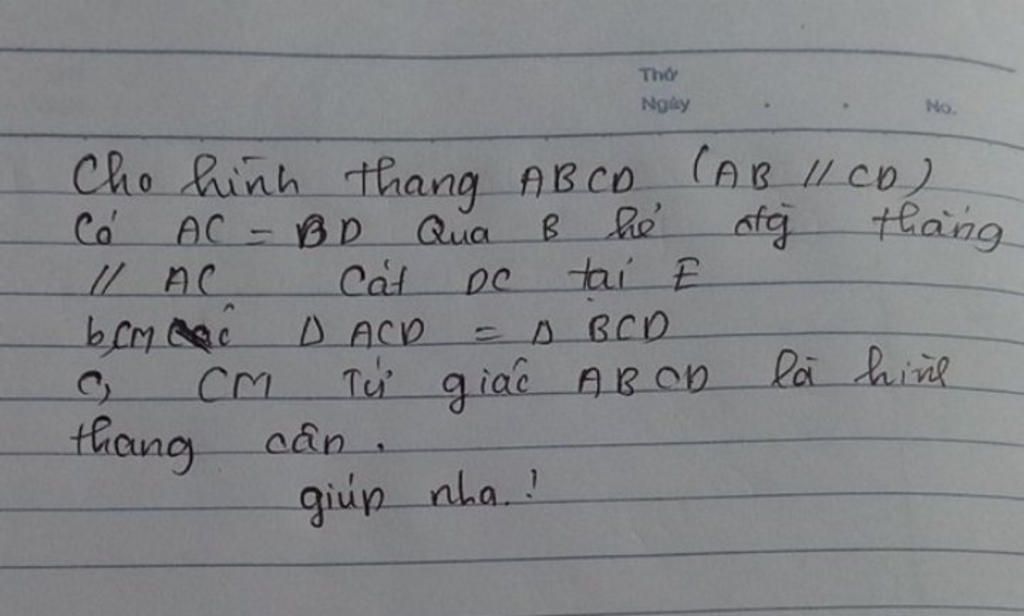 Thứ
Ngày . . No.
Cho hình thang ABCD (AB // CD)
Có AC = BD Qua B kẻ đg thẳng
// AC Cắt DC tại E
b, CM Δ ACD = Δ BCD
c, CM Tứ giác ABCD là hình
thang cân.
giúp nha!